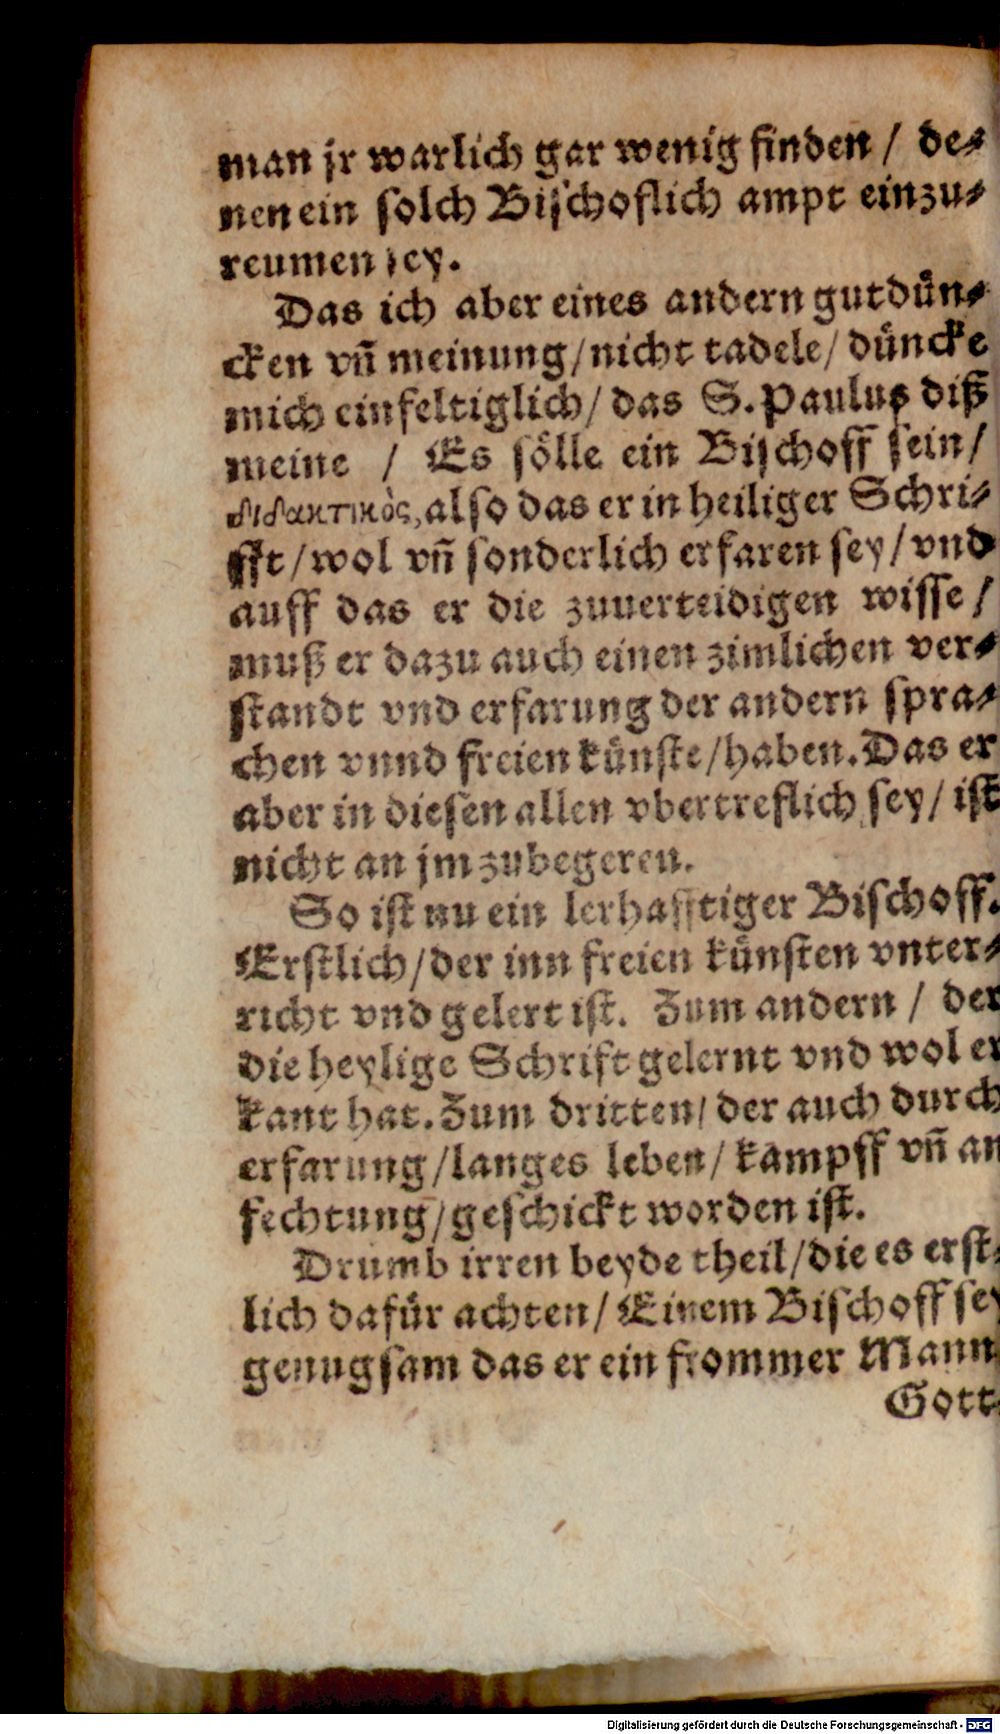 man jr warlich gar wenig finden / de⸗
nen ein solch Bischoflich ampt einzu⸗
reumen sey.
Das ich aber eines andern gutdün⸗
cken vñ meinung / nicht tadele / düncke
mich einfeltiglich / das S. Paulus diß
meine / Es sölle ein Bischoff sein /
διδακτικὸς, also das er in heiliger Schri⸗
fft / wol vñ sonderlich erfaren sey / vnd
auff das er die zuuerteidigen wisse /
muß er dazu auch einen zimlichen ver⸗
standt vnd erfarung der andern spra⸗
chen vnnd freien künste / haben. Das er
aber in diesen allen vbertreflich sey / ist
nicht an jm zubegeren.
So ist nu ein lerhafftiger Bischoff.
Erstlich / der inn freien künsten vnter⸗
richt vnd gelert ist. Zum andern / der
die heylige Schrift gelernt vnd wol er
kant hat. Zum dritten / der auch durch
erfarung / langes leben / kampff vñ an
fechtung / geschickt worden ist.
Drumb irren beyde theil / die es erst⸗
lich dafür achten / Einem Bischoff sey
genugsam das er ein frommer Mann
Gott⸗
Digitalisierung gefördert durch die Deutsche Forschungsgemeinschaft - DFG